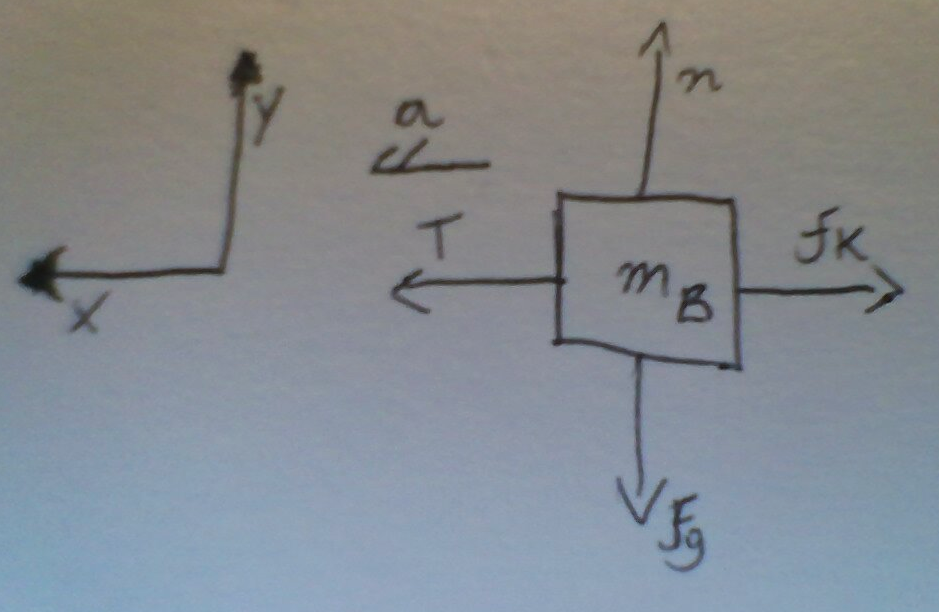 y
x
a
T
n
m_B
fK
Fg